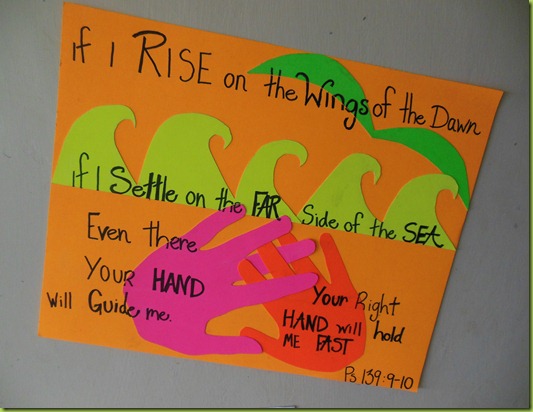 If I RISE on the Wings of the Dawn
If I Settle on the FAR Side of the SEA
Even there
YOUR HAND
will Guide me.
Your Right
HAND will hold
ME FAST
Ps 139:9-10